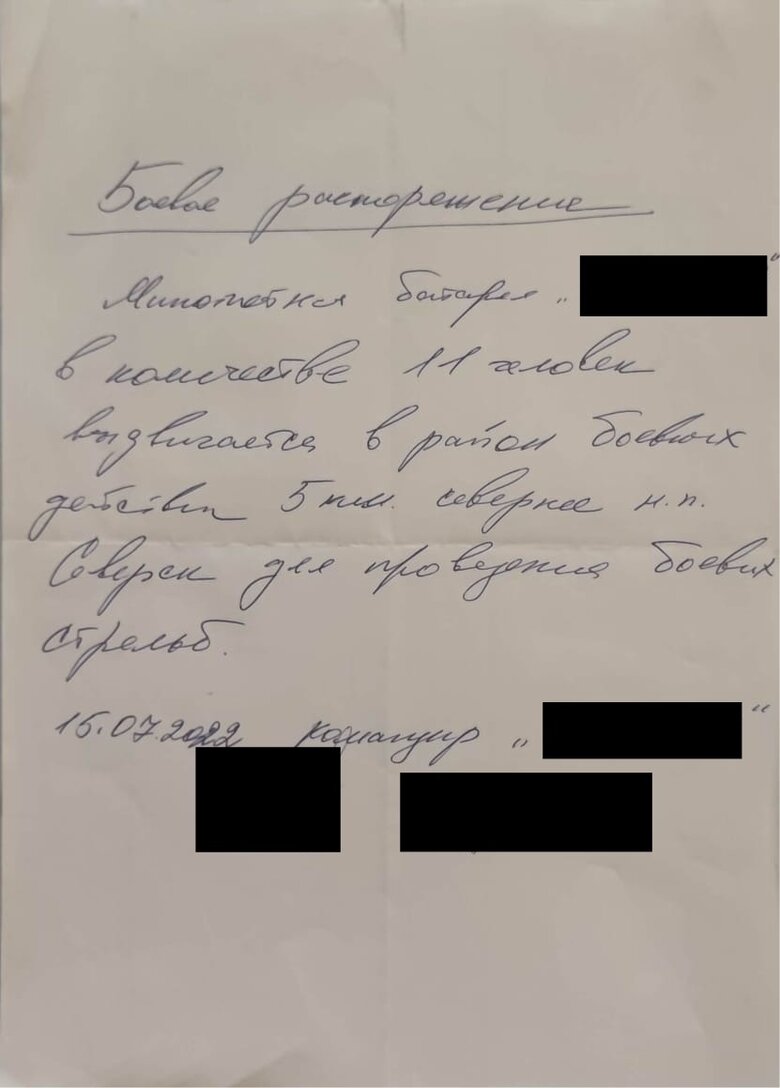 Боевое распоряжение
Минометная батарея „ "
в количестве 11 человек
выдвигается в район боевых
действий 5 км. севернее н.п.
Северск для проведения боевых
стрельб.
15.07.2022 командир „ "